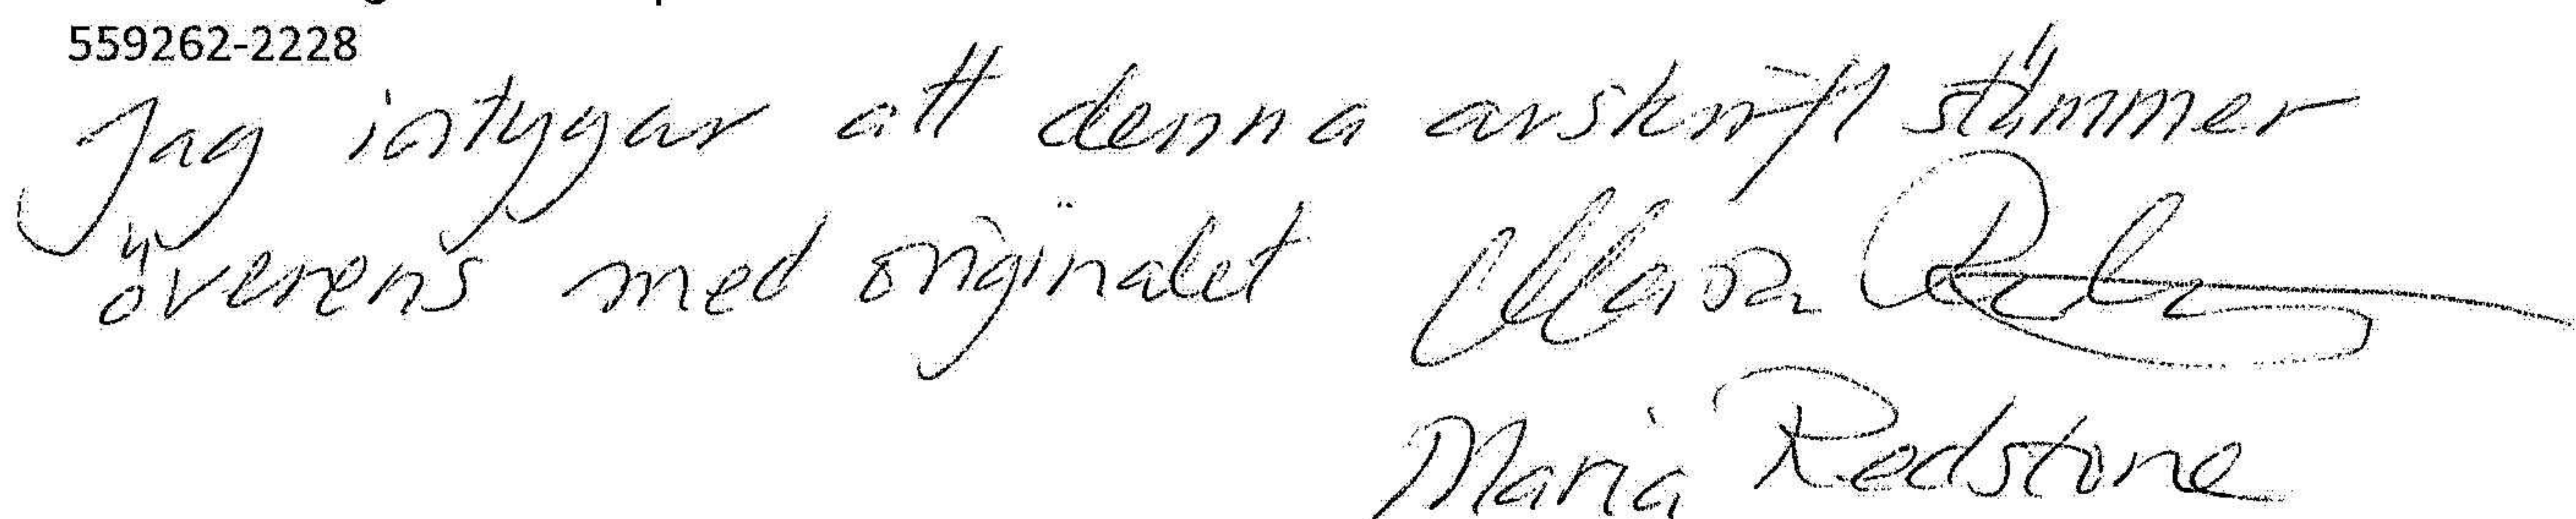 559262-2228
Jag intygar att denna avskrift stämmer
överens med originalet Maria
Maria Redstone